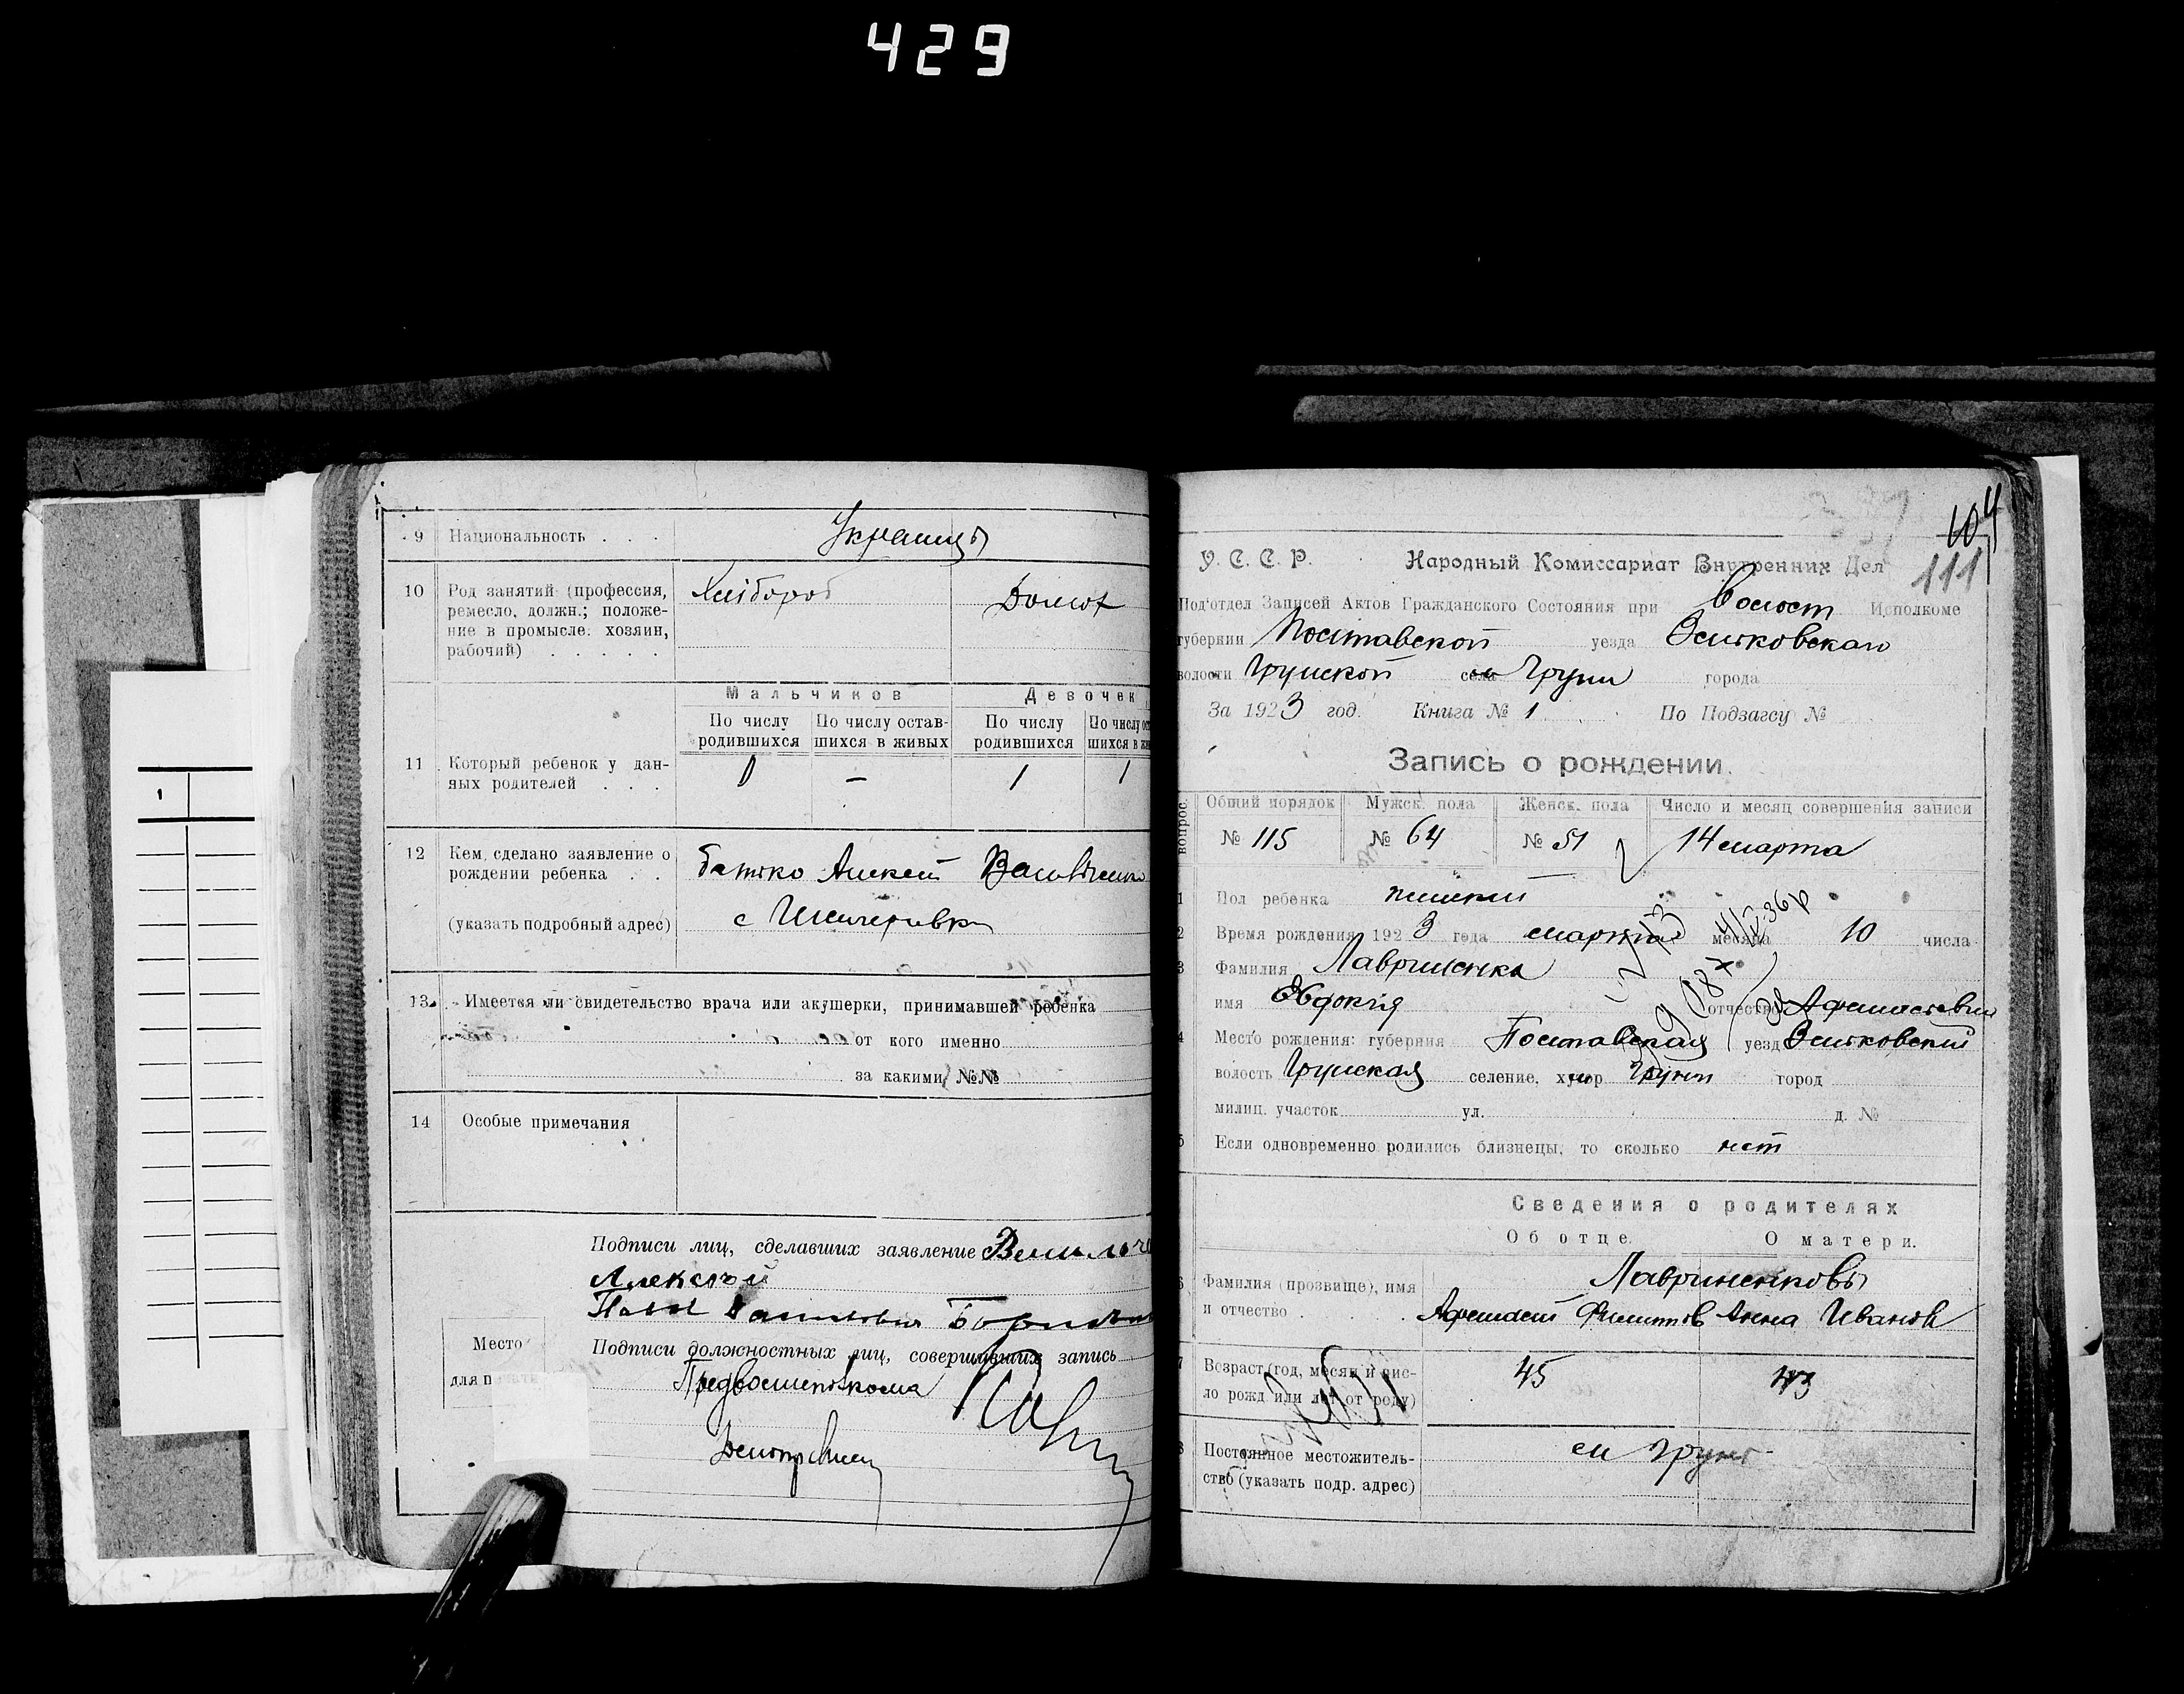 429
9 Национальность . . . Украинцы
10 Род занятий (профессия, ремесло, должн.; положение в промысле: хозяин, рабочий) . . . . . Хлібороб
Мальчиков Девочек
По числу родившихся По числу остав- шихся в живых По числу родившихся По числу
11 Который ребенок у дан-
ных родителей . . . 1 1
12 Кем сделано заявление о
рождении ребенка . . батько Алексей
(указать подробный адрес) с
13. Имеется ли свидетельство врача или акушерки, принимавшей ребенка
от кого именно
за какими №№
14 Особые примечания
Подписи лиц, сделавших заявление
Алексей
Место
Подписи должностных лиц, совершивших запись
для печати
104
111
У. С. С. Р. Народный Комиссариат Внутренних Дел
Под'отдел Записей Актов Гражданского Состояния при Волост Исполкоме
губернии Полтавской уезда Зеньковскаго
волости Грунской села м Груни города
За 1923 год. Книга № 1 По Подзагсу №
Запись о рождении.
вопрос. Общий порядок Мужск. пола Женск. пола Число и месяц совершения записи
№ 115 № 64 № 51 14 марта
1 Пол ребенка женский
2 Время рождения 1923 года марта месяца 10 числа
3 Фамилия Лавриненко
имя Евдокия отчество Афанасьевна
4 Место рождения: губерния Полтавская уезд Зеньковский
волость Грунская селение, хутор м Грунь город
милиц. участок ул. д. №
5 Если одновременно родились близнецы, то сколько нет
Сведения о родителях
Об отце. О матери.
6 Фамилия (прозвище), имя Лавриненковы
и отчество . . . . Афанасий Филиппов Анна Иванов
7 Возраст (год, месяц и чис-
ло рожд или лет от роду) 45 43
8 Постоянное местожитель- м Грунь
ство (указать подр. адрес)